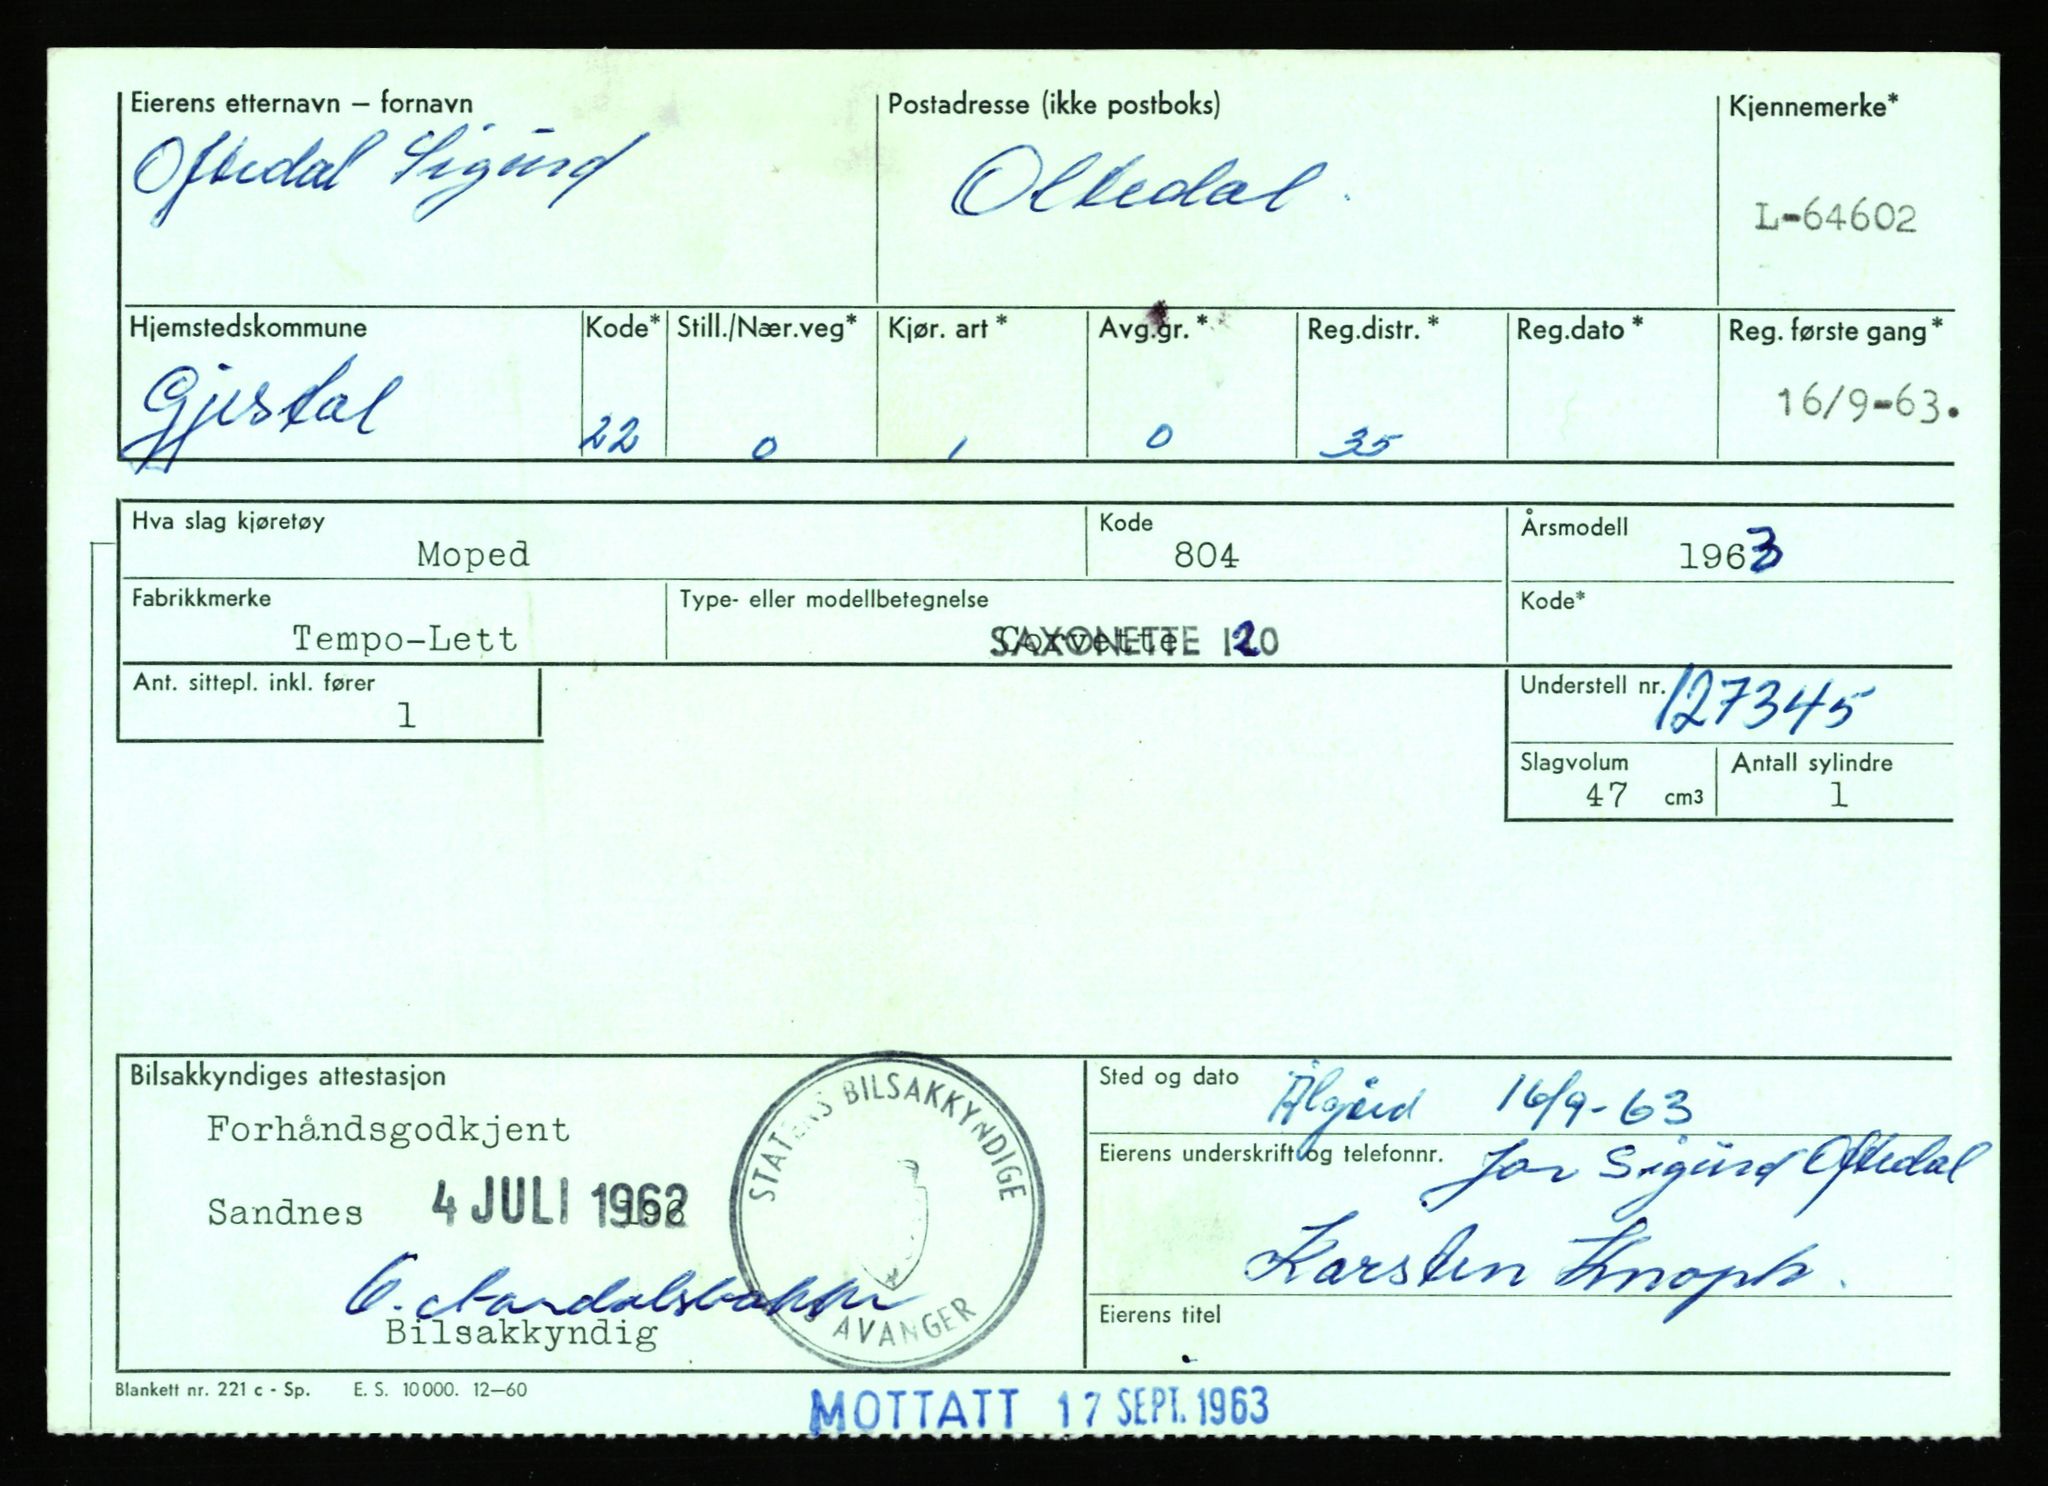 Eierens etternavn – fornavn
Oftedal Sigurd
Postadresse (ikke postboks)
Oltedal
Kjennemerke*
L-64602
Hjemstedskommune
Gjesdal
Kode*
22
Still./Nær.veg*
0
Kjør. art*
1
Avg.gr.*
0
Reg.distr.*
35
Reg.dato*
Reg. første gang*
16/9-63.
Hva slag kjøretøy
Moped
Kode
804
Årsmodell
1963
Fabrikkmerke
Tempo-Lett
Type- eller modellbetegnelse
Corvette
SAXONETTE 120
Kode*
Ant. sittepl. inkl. fører
1
Understell nr.
127345
Slagvolum
47 cm3
Antall sylindre
1
Bilsakkyndiges attestasjon
Forhåndsgodkjent
Sandnes 4 JULI 1962
Bilsakkyndig
STATENS BILSAKKYNDIGE
STAVANGER
Sted og dato
Ålgård 16/9-63
Eierens underskrift og telefonnr.
Jon Sigurd Oftedal
Karsten Knoph.
Eierens titel
Blankett nr. 221 c - Sp. E. S. 10000. 12–60
MOTTATT 17 SEPT. 1963